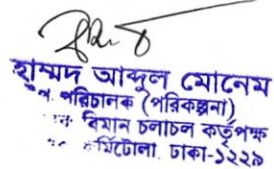 হাম্মদ আব্দুল মোনেম
পরিচালক (পরিকল্পনা)
বিমান চলাচল কর্তৃপক্ষ
র্মিটোলা, ঢাকা-১২২৯